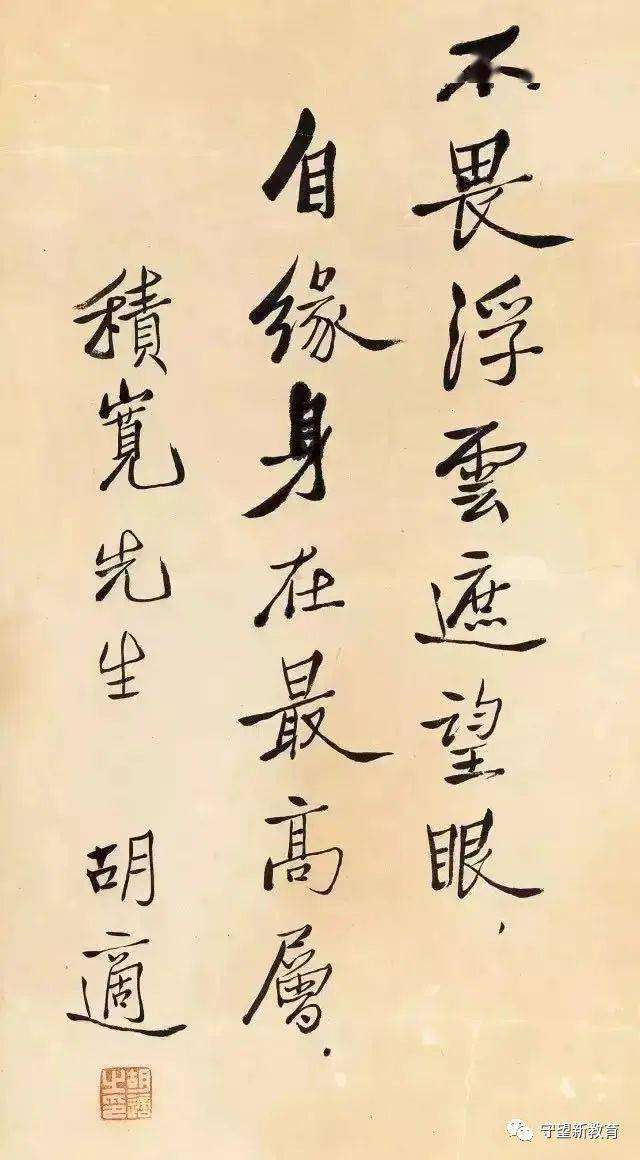 不畏浮雲遮望眼，
自緣身在最高層．
積寬先生 胡適
胡適之印
守望新教育